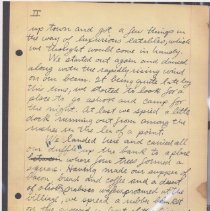 IV
up town and got a few things in
the way of luxurious eatables, which
we thought would come in handy.
We started out again and danced
along with the rapidly rising wind
on our beam. It being quite late by
this time, we started to look for a
place to go ashore and camp for
the night. At last we spied a little
dock running out from among the
rushes in the lee of a point.
We landed here and carried all
our up the bank to a place
where four trees formed a
square. Having made our supper of
bread and coffee and a desert
of
village, we spread a rubber blanket
on the ground